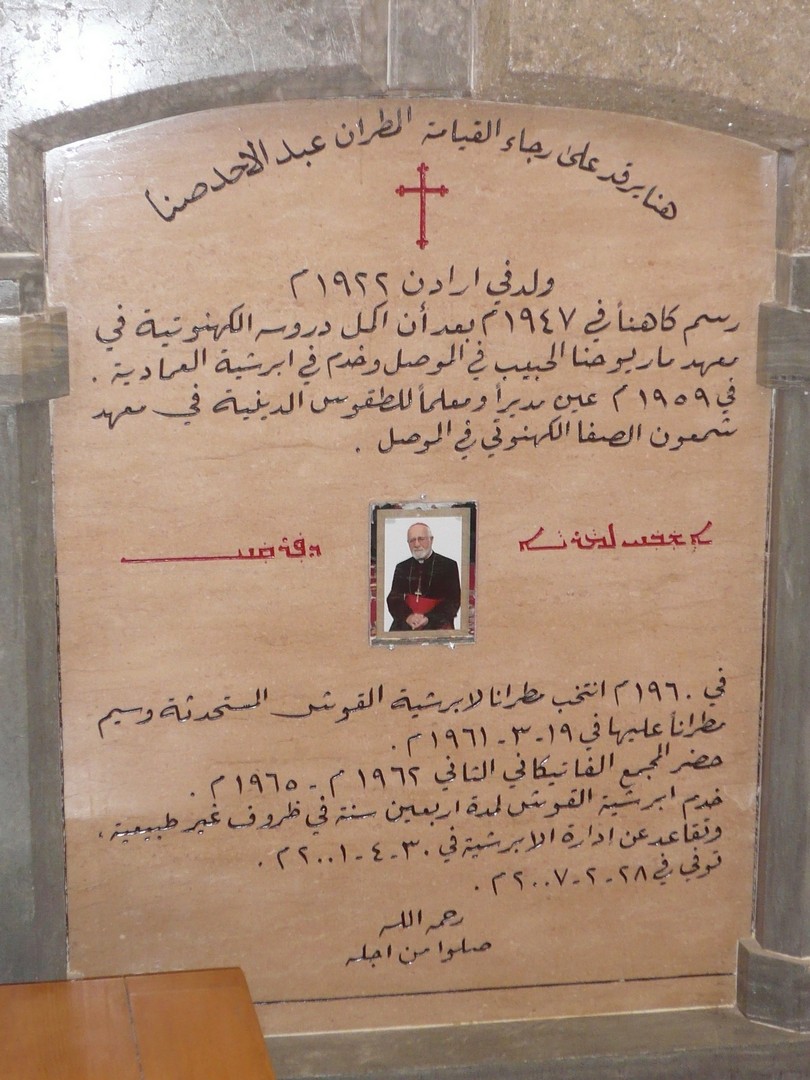 هنا يرقد على رجاء القيامة المطران عبد الاحد صنا
ولد في ارادن ١٩٢٢م
رسم كاهناً في ١٩٤٧م بعد أن اكمل دروسه الكهنوتية في
معهد مار يوحنا الحبيب في الموصل وخدم في ابرشية العمادية .
في ١٩٥٩م عين مديراً ومعلماً للطقوس الدينية في معهد
شمعون الصفا الكهنوتي في الموصل .
في ١٩٦٠م انتخب مطرانا لابرشية القوش المستحدثة وسيم
مطراناً عليها في ١٩-٣-١٩٦١م .
حضر المجمع الفاتيكاني الثاني ١٩٦٢م - ١٩٦٥م .
خدم ابرشية القوش لمدة اربعين سنة في ظروف غير طبيعية ،
وتقاعد عن ادارة الابرشية في ٣٠-٤-٢٠٠١م .
توفي في ٢٨-٢-٢٠٠٧م .
رحمه الله
صلوا من اجله